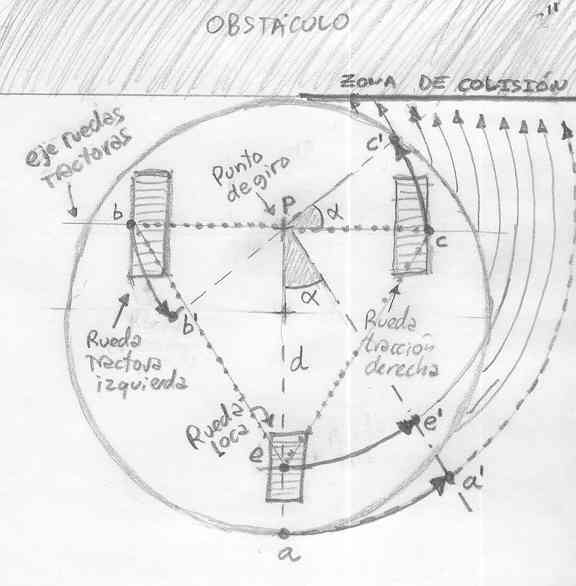 OBSTÁCULO
ZONA DE COLISIÓN
eje ruedas
tractoras
Punto
de giro
c'
P
α
b
c
α
b'
Rueda
tractora
izquierda
d
Rueda
tracción
derecha
Rueda
loca
e
e'
a'
a